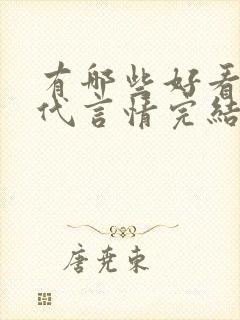 有哪些好看
代言情完结
唐尧东